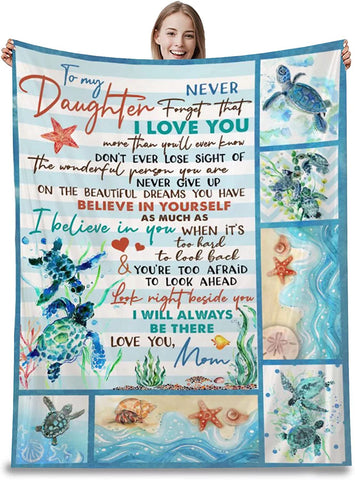 To my
Daughter
NEVER
Forget that
I LOVE YOU
more than you'll ever know
DON'T EVER LOSE SIGHT OF
the wonderful person you are
NEVER GIVE UP
ON THE BEAUTIFUL DREAMS YOU HAVE
BELIEVE IN YOURSELF
AS MUCH AS
I believe in you WHEN IT'S
too hard
to look back
& YOU'RE TOO AFRAID
TO LOOK AHEAD
Look right beside you
I WILL ALWAYS
BE THERE
LOVE YOU,
Mom